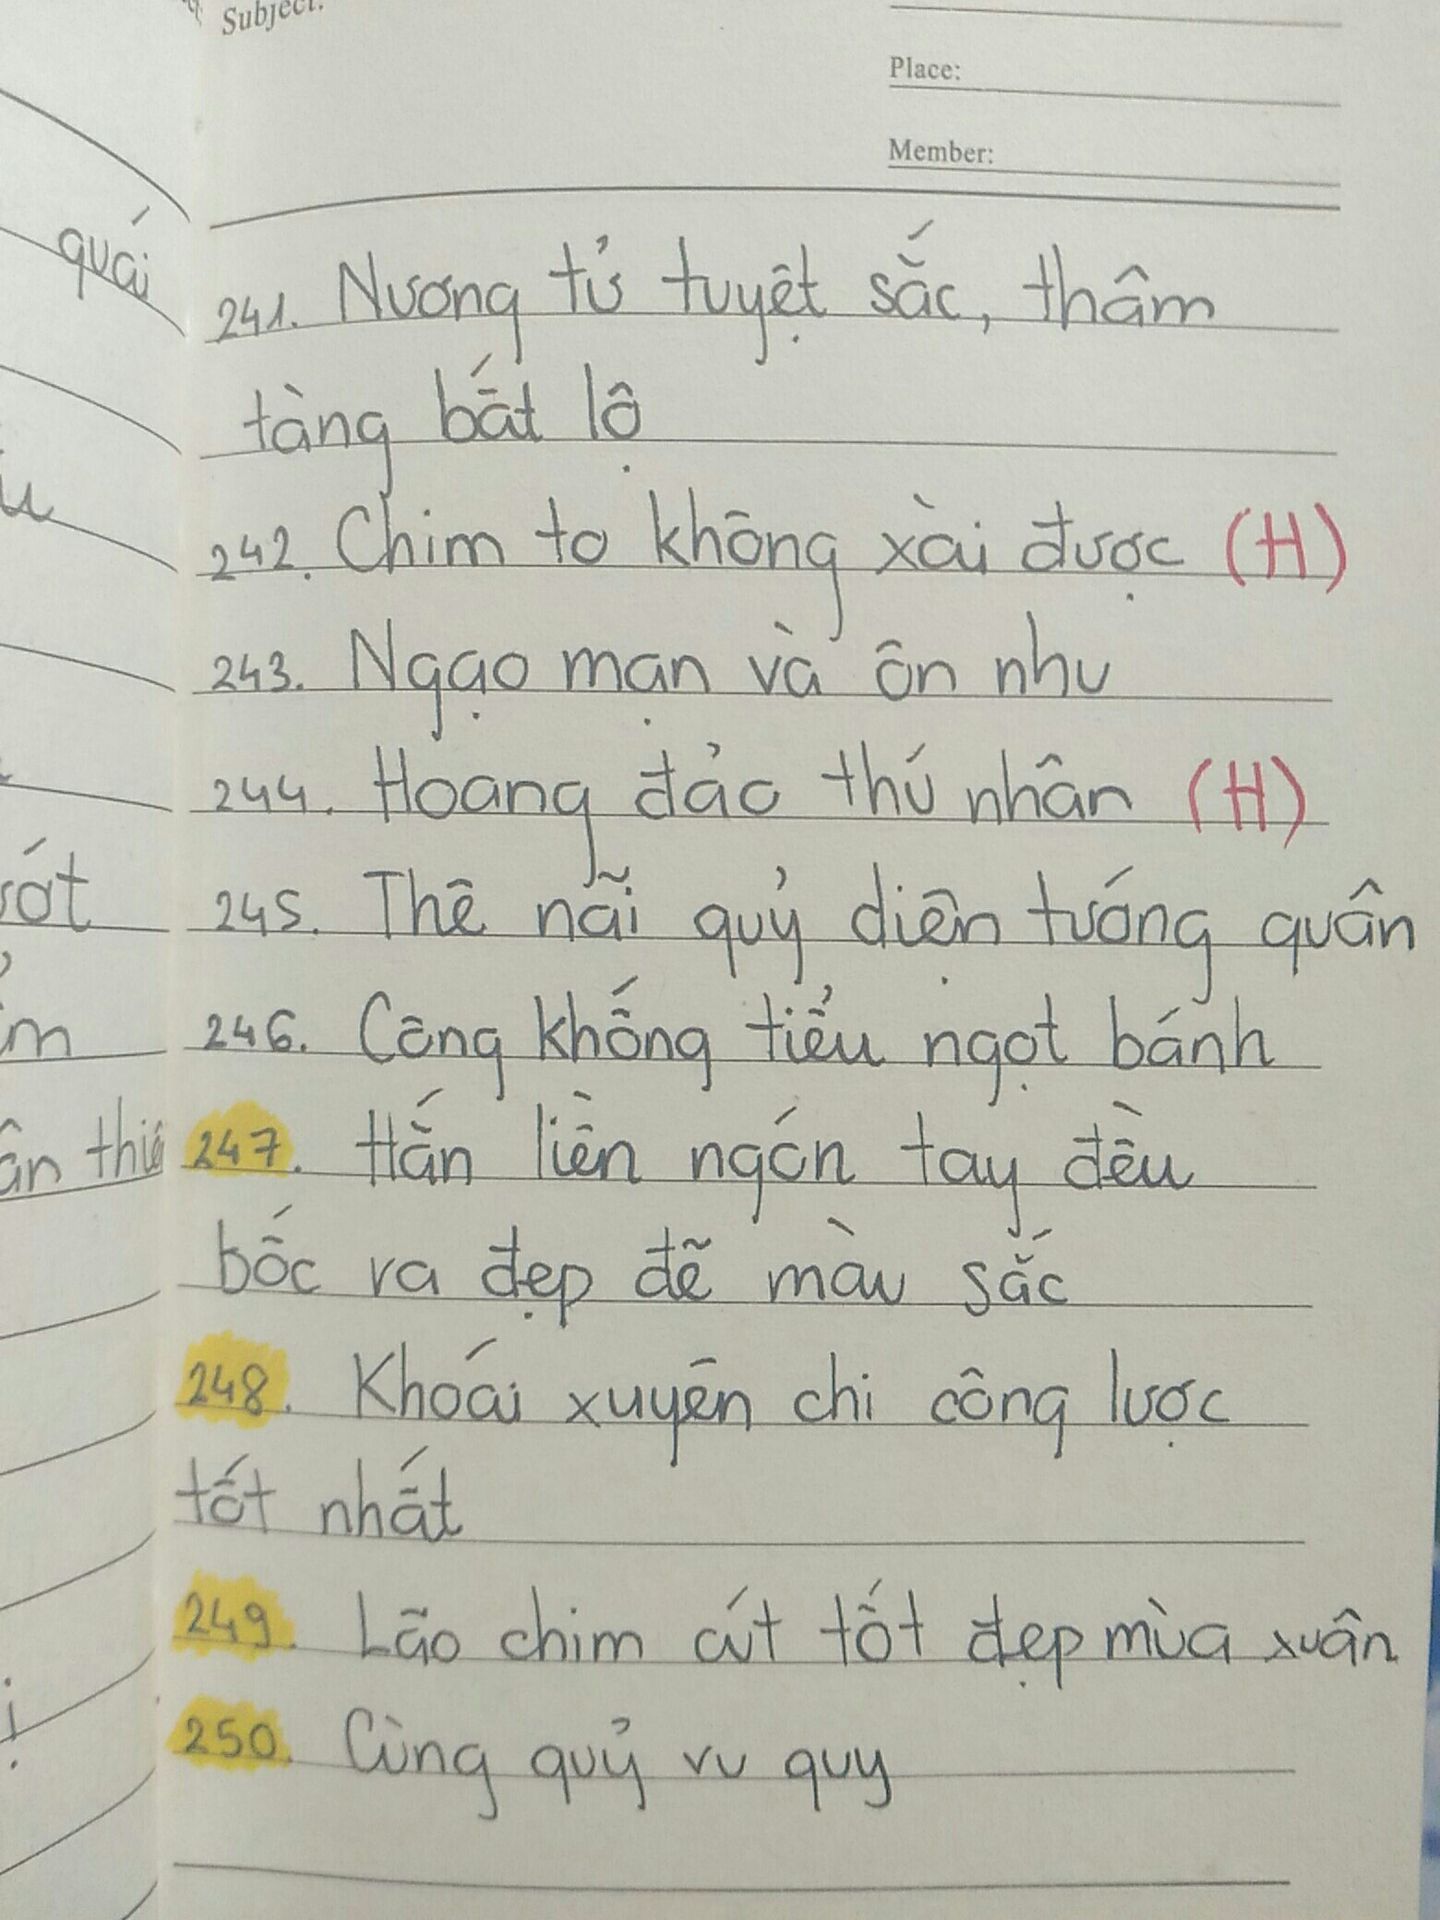 Subject:
Place:
Member:
quái
241. Nương tử tuyệt sắc, thâm
tàng bất lộ
242. Chim to không xài được (H)
243. Ngạo mạn và ôn nhu
244. Hoang đảo thú nhân (H)
245. Thê nãi quỷ diện tướng quân
246. Công khống tiểu ngọt bánh
247. Hắn liền ngón tay đều
bốc ra đẹp đẽ màu sắc
248. Khoái xuyên chi công lược
tốt nhất
249. Lão chim cút tốt đẹp mùa xuân
250. Cùng quỷ vu quy